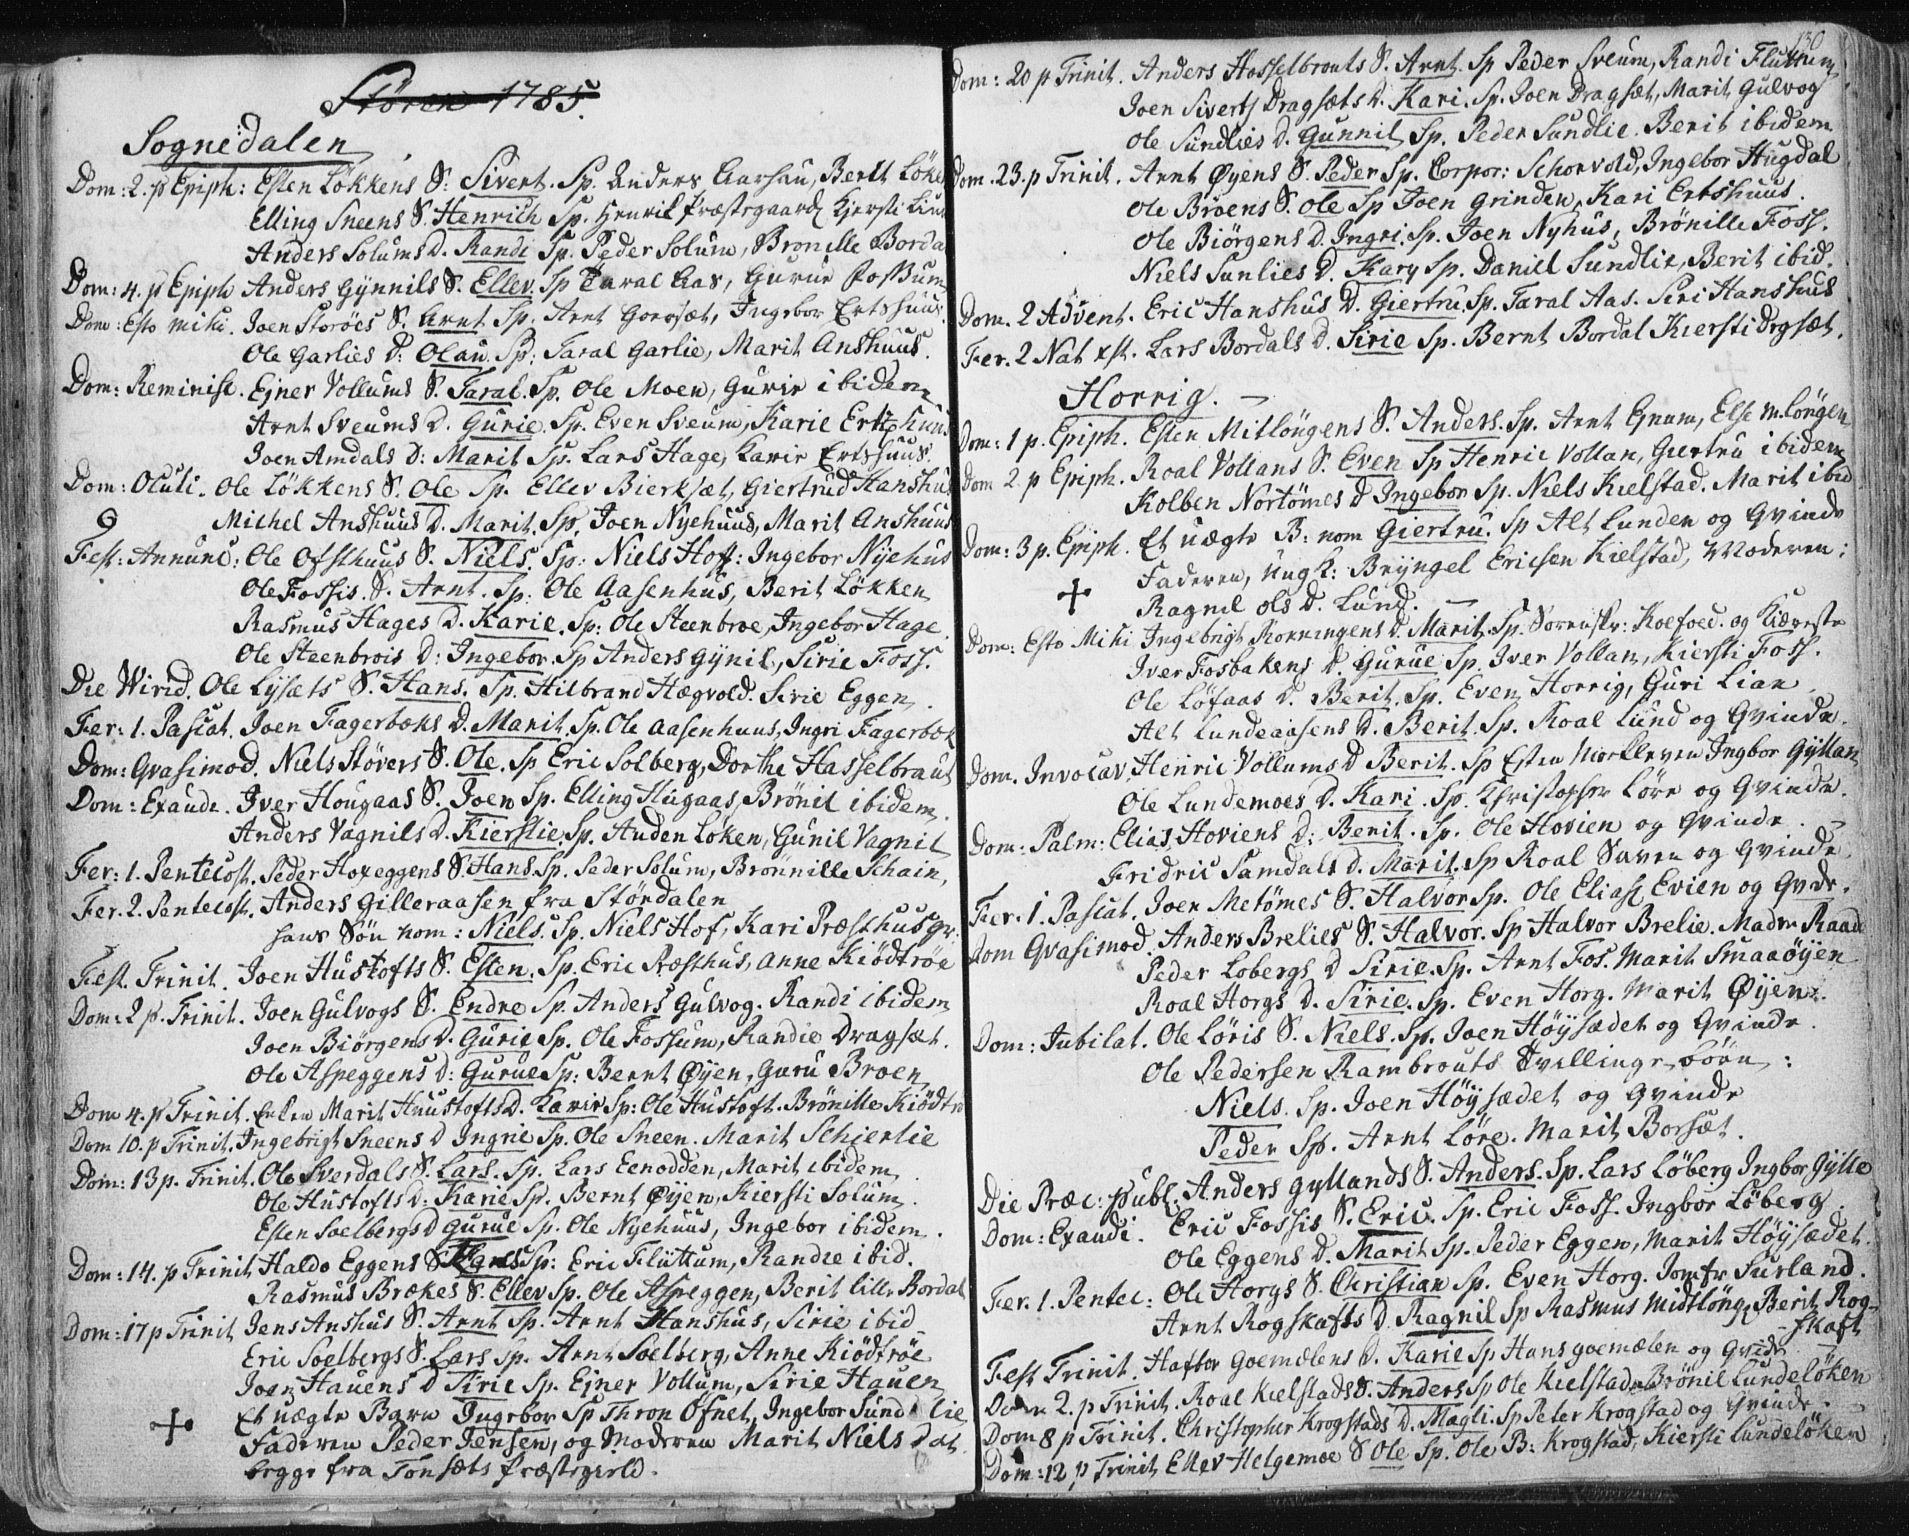 Stören 1785.
Sognedalen
Dom: 2. p Epiph: Esten Løkkens S: Sivert. Sp. Anders Aarhau, Berit Løken
Elling Sneens S. Henrich Sp. Henrik Præstegaard Kjersti
Anders Solums D. Randi Sp. Peder Solum, Bronille Bordal
Dom: 4. p Epiph Anders Gynnils S. Ellev. Sp Taral Aas, Gurue Fossum
Dom: Esto mihi. Joen Storöes S. Arnt Sp. Arnt Goersæt, Ingebor Ertshuus.
Ole Garlies D: Olau. Sp: Taral Garlie, Marit Anshuus.
Dom: Reminisc. Ejner Vollums S. Taral. Sp. Ole Moen, Gurie ibidem
Arnt Sveums D. Gurie. Sp. Even Sveum, Karie Ertshuus
Joen Amdals D: Marit Sp. Lars Hage, Karie Ertshuus.
Dom: Oculi. Ole Løkkens S. Ole Sp. Ellev Bierksæt, Giertrud Hanshus
9 Michel Anshuus D. Marit. Sp. Joen Nyehuus, Marit Anshuus
Fest: Annunc: Ole Ofsthuus S. Niels. Sp: Niels Hoff: Ingebor Nyehus
Ole Fossis. S. Arnt. Sp: Ole Aasenhus, Berit Løkken
Rasmus Hages D. Karie. Sp: Ole Steenbroe, Ingebor Hage.
Ole Steenbrois D: Ingebor. Sp Anders Gynil, Sirie Foss.
Die Virid. Ole Lysæts S. Hans. Sp. Hilbrand Hægvold. Sirie Eggen.
Fer: 1. Pascat. Joen Fagerbæks D. Marit. Sp. Ole Aasenhuus, Ingri Fagerbæk
Dom: Qvasimod. Niels Støvers S. Ole. Sp Eric Solberg, Dorthe Hasselbraut
Dom: Exaude. Iver Hougaas S. Joen Sp. Elling Hugaas, Brönil ibidem.
Anders Vagnils D. Kierstie. Sp. Auden Løken, Gunil Vagnil
Fer: 1. Pentecost. Peder Hoxeggens S. Hans. Sp. Peder Solum, Brønnille Schain,
Fer. 2. Pentecost. Anders Gilleraasen fra Størdalen
hans Søn nom: Niels. Sp. Niels Hof, Kari Præsthus
Fest. Trinit. Joen Hustofts S. Esten. Sp. Eric Præsthus, Anne Kiödtröe
Dom: 2 p. Trinit. Joen Gulvogs S. Endre Sp. Anders Gulvog. Randi ibidem
Joen Biörgens D. Gurie Sp. Ole Fossum, Randie Dragsæt.
Ole Aspeggens D: Gurue Sp: Bernt Øyen, Guru Broen
Dom 4. p Trinit. Enken Marit Huustofts D. Karie Sp: Ole Hustoft. Brönille Kiödtr
Dom 10. p Trinit. Ingebrigt Sneens D Ingrie Sp. Ole Sneen. Marit Schierlie
Dom: 13 p. Trinit. Ole Sverdals S. Lars. Sp. Lars Eenodden, Marit ibidem
Ole Hustofts D: Karie Sp. Bernt Øyen, Kiersti Solum.
Esten Soelbergs D Gurue Sp. Ole Nyehuus, Ingebor ibidem.
Dom: 14. p Trinit Haldo Eggens S. Hans Sp: Eric Fluttum, Randie ibid.
Rasmus Brækes S. Ellev Sp. Ole Aspeggen, Berit lille Bordal
Dom: 17 p Trinit Jens Anshus S. Arnt Sp. Arnt Hanshus, Sirie ibid
Eric Soelbergs S. Lars Sp. Arnt Soelberg, Anne Kiödtröe
Joen Hauens D Sirie Sp. Ejner Vollum, Sirie Hauen
Et uægte Barn Ingebor Sp Thron Ofnet, Ingebor Sundlie
Faderen Peder Jensen, og Moderen Marit Niels Dat
begge fra Tonsæts Præstegield.
130
Dom: 20 p Trinit. Anders Hasselbrouts S. Arnt. Sp Peder Sveum, Randi Fluttum
Joen Siverts Dragsæts D. Kari. Sp. Joen Dragsæt, Marit Gulvog
Ole Sundlies D. Gunnil Sp. Peder Sundlie. Berit ibidem
Dom. 23. p Trinit. Arnt Øyens S. Peder Sp. Corpor: Schorvold, Ingebor Hugdal
Ole Broens S. Ole Sp Joen Grinden, Kari Ertshuus.
Ole Biörgens D. Ingri. Sp. Joen Nyhus, Brönille Foss.
Niels Sunlies D. Kary Sp. Daniel Sundlie, Berit ibid.
Dom. 2 Advent. Eric Hanshus D. Giertru. Sp. Taral Aas. Siri Hanshus
Fer. 2 Nat xst. Lars Bordals D. Sirie Sp. Bernt Bordal Kiersti Drgsæt.
Horrig.
Dom: 1 p. Epiph. Esten Mitlöngens S. Anders. Sp. Arnt Gram, Else M.löngen
Dom 2 p Epiph. Roal Vollans S. Even Sp Henric Vollan, Giertru ibidem
Kolben Nortömes D Ingebor Sp. Niels Kielstad. Marit ibid
Dom: 3 p. Epiph. Et uægte B: nom Giertru. Sp Alt Lunden og Qvinde
Faderen, Ungk: Bryngel Ericsen Kielstad, Moderen:
Ragnil Ols D. Lund.
Dom: Esto Mihi Ingebrigt Korningens D. Marit. Sp. Sorenskr: Koefoed. og Kiæreste
Iver Fosbakens D. Gurue Sp. Iver Vollan, Kiersti Foss.
Ole Löfaas D. Berit. Sp. Even Horrig, Guri Lian.
Alt Lundeaasens D. Berit. Sp. Roal Lund og Qvinde.
Dom. Invocav. Henric Vollums D Berit. Sp Esten Morkleven Ingbor Gyllan
Ole Lundemoes D. Kari. Sp. Christopher Löre og Qvinde.
Dom: Palm: Elias Hoviens D: Berit. Sp. Ole Hovien og Qvinde.
Fridric Samdals D. Marit. Sp Roal Saven og Qvinde
Fer. 1. Pascat. Joen Metömes S. Halvor Sp. Ole Elias Evien og Qvde.
Dom Qvasimod. Anders Brelies S. Halvor. Sp Halvor Brelie. Madm Raad
Peder Lobergs D Sirie. Sp. Arnt Fos. Marit Smaaöyen
Roal Horgs D. Sirie. Sp. Even Horg. Marit Øyen.
Dom: Jubilat. Ole Löris S. Niels. Sp. Joen Höysædet og Qvinde.
Ole Pedersen Rambrouts Tvillinge börn:
Niels. Sp. Joen Höysædet og Qvinde
Peder Sp. Arnt Löre. Marit Borsæt.
Die Præc: publ. Anders Gyllands S. Anders. Sp. Lars Löberg Ingbor Gylle
Dom: Exaudi. Eric Fossis S. Eric. Sp. Eric Foss. Ingbor Löberg.
Ole Eggens D. Marit Sp. Peder Eggen, Marit Höysædet.
Fer. 1. Pentec: Ole Horgs S. Christian Sp. Even Horg. Jomfr Surland.
Arnt Rogskafts D. Ragnil Sp Rasmus Midtlöng, Berit Rog-
skaft
Fest Trinit. Haftor Goemælens D. Karie Sp Hans Goemælen og Qvide
Dom 2. p Trinit. Roal Kielstads S. Anders Sp Ole Kielstad Brönil Lundelöken
Dom 8 p Trinit. Christopher Krogstads D. Magli. Sp Peter Krogstad og Qvinde.
Dom: 12 p Trinit Ellev Helgemoe S Ole Sp. Ole B: Krogstad, Kiersti Lundelöken